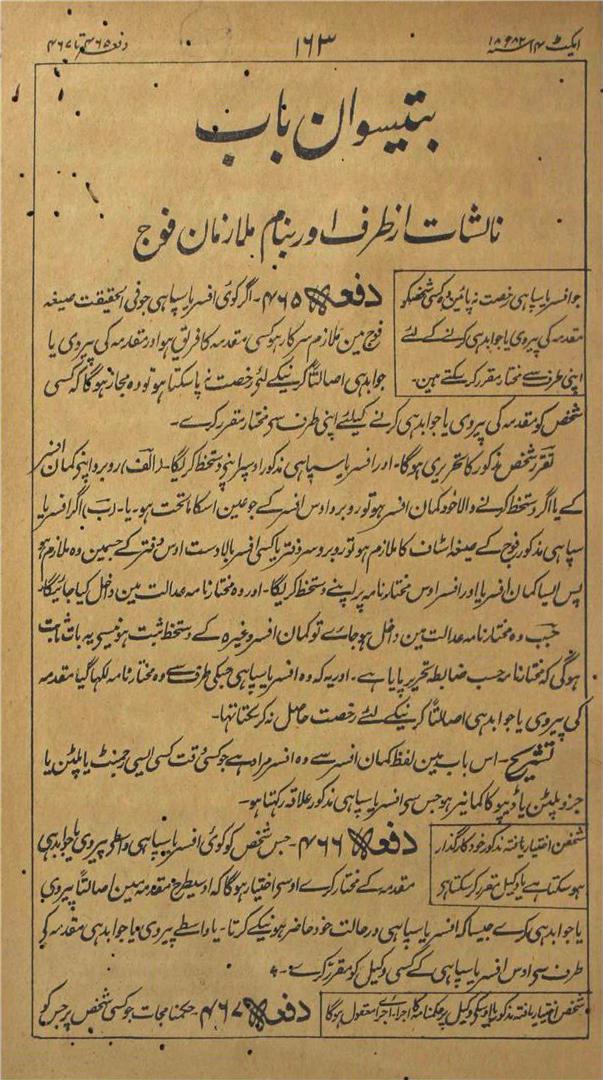 ایکٹ ۱۴ سنہ ۱۸۸۲ء
۱۶۳
دفعہ ۴۶۵ تا ۴۶۷
بتیسوان باب
نالشات از طرف اور بنام ملازمان فوج
جو افسر یا سپاہی رخصت نہ پائین وہ کسی شخص کو
مقدمہ کی پیروی یا جوابدہی کرنے کے لئے
اپنی طرف سے مختار مقرر کر سکتے ہین۔
دفعہ ۴۶۵۔ اگر کوئی افسر یا سپاہی جو فی الحقیقت صیغہ
فوج مین ملازم سرکار ہو کسی مقدمہ کا فریق ہو اور مقدمہ کی پیروی یا
جوابدہی اصالتاً کرنیکے لئے رخصت نہ پا سکتا ہو تو وہ مجاز ہوگا کہ کسی
شخص کو مقدمہ کی پیروی یا جوابدہی کرنے کیلئے اپنی طرف سے مختار مقرر کرے۔
تقرر شخص مذکور کا تحریری ہوگا۔ اور افسر یا سپاہی مذکور اوسپر اپنے دستخط کریگا۔ (الف) روبرو اپنے کمان افسر
کے یا اگر دستخط کرنے والا خود کمان افسر ہو تو روبرو اوس افسر کے جو عین اسکا ماتحت ہو۔ یا۔ (ب) اگر افسر یا
سپاہی مذکور فوج کے صیغہ اسٹاف کا ملازم ہو تو روبروے دفتر یا کسی افسر بالادست اوس دفتر کے جسمین وہ ملازم ہو
پس ایسا کمان افسر یا اور افسر اوس مختارنامہ پر اپنے دستخط کریگا۔ اور وہ مختارنامہ عدالت مین داخل کیا جائیگا۔
جب وہ مختارنامہ عدالت مین داخل ہو جاے تو کمان افسر وغیرہ کے دستخط ثبت ہونیسے یہ بات ثابت
ہوگی کہ مختارنامہ حسب ضابطہ تحریر پایا ہے۔ اور یہ کہ وہ افسر یا سپاہی جسکی طرف سے وہ مختارنامہ لکھا گیا مقدمہ
کی پیروی یا جوابدہی اصالتاً کرنیکے لئے رخصت حاصل نہ کر سکتا تھا۔
تشریح۔ اس باب مین لفظ کمان افسر سے وہ افسر مراد ہے جو کسی وقت کسی ایسی رجمنٹ یا پلٹن یا
جزو پلٹن یا ڈیپو کا کمانیر ہو جس سے افسر یا سپاہی مذکور علاقہ رکھتا ہو۔
شخص اختیار یافتہ مذکور خود کارگذار
ہو سکتا ہے یا وکیل مقرر کر سکتا ہے
دفعہ ۴۶۶۔ جس شخص کو کوئی افسر یا سپاہی واسطے پیروی یا جوابدہی
مقدمہ کے مختار کرے اوسے اختیار ہوگا کہ اوسیطرح مقدمہ مین اصالتاً پیروی
یا جوابدہی کرے جیسا کہ افسر یا سپاہی در حالت خود حاضر ہونیکے کرتا۔ یا واسطے پیروی یا جوابدہی مقدمہ کی
طرف سے اوس افسر یا سپاہی کے کسی وکیل کو مقرر کرے۔
شخص اختیار یافتہ مذکور یا اوسکے وکیل پر حکمنامہ کا اجرا۔ اجراے معقول ہوگا
دفعہ ۴۶۷۔ حکمنامجات جو کسی شخص پر جسکو